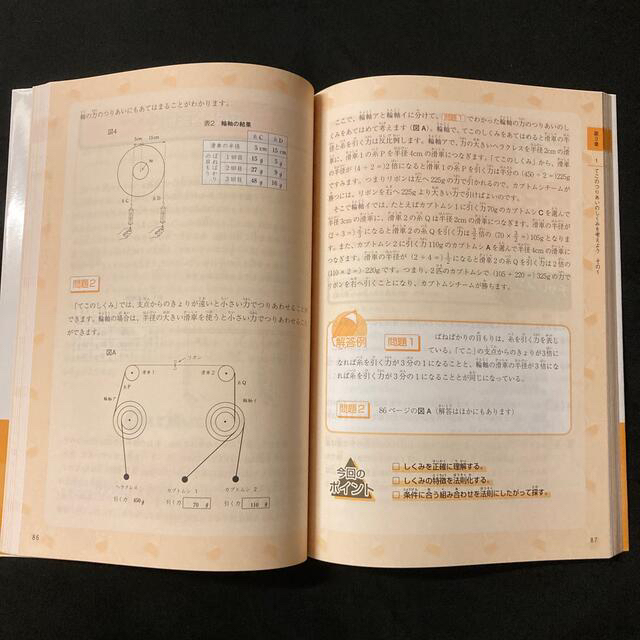 軸の力のつりあいにもあてはまることがわかります。
図4
5cm 15cm
W
糸C
糸D
表2 輪軸の結果
糸C 糸D
滑車の半径 5cm 15cm
ばねばかりの目もり
1回目 15g 5g
2回目 27g 9g
3回目 48g 16g
問題2
「てこのしくみ」では、支点からのきょりが遠いと小さい力でつりあわせることが
できます。輪軸の場合は、半径の大きい滑車を使うと小さい力でつりあわせること
ができます。
図A
リボン
滑車1
滑車2
糸P
糸Q
輪軸ア
輪軸イ
ヘラクレス
カブトムシ1
カブトムシ2
引く力 450g
引く力 70 g
引く力 110 g
86
ここで、輪軸アと輪軸イに分けて、問題1でわかった輪軸の力のつりあいのし
くみをあてはめて考えます(図A)。輪軸で、てこのしくみをあてはめると滑車の半
径と糸を引く力は反比例します。輪軸アで、力の大きいヘラクレスを半径2cmの滑
車に、滑車1の糸Pを半径4cmの滑車につなぎます。「てこのしくみ」から、滑車
の半径が(4÷2=)2倍になると滑車1の糸Pを引く力は半分の(450÷2=)225g
ですみます。つまりリボンは左へ225gの力で引かれるので、カブトムシチームが
勝つには、リボンを右へ225gより大きい力で引けばよいのです。
そこで輪軸イでは、たとえばカブトムシ1に引く力70gのカブトムシCを選んで
半径3cmの滑車に、滑車2の糸Qは半径2cmの滑車につなぎます。滑車の半径が
(2÷3=)2/3になると滑車2の糸Qを引く力は3/2倍の(70×3/2=)105gとなりま
す。また、カブトムシ2に引く力110gのカブトムシAを選んで半径4cmの滑車につ
なぎます。滑車の半径が(2÷4=)1/2になると滑車2の糸Qを引く力は2倍の
(110×2=)220gです。つまり、2匹のカブトムシで(105+220=)325gの力で
リボンを右へ引くことになり、カブトムシチームが勝ちます。
解答例
問題1
ばねばかりの目もりは、糸を引く力を表し
ている。「てこ」の支点からのきょりが3倍に
なれば糸を引く力が3分の1になることと、輪軸の滑車の半径が3倍にな
れば糸を引く力が3分の1になることとが同じになっている。
問題2
86ページの図A(解答はほかにもあります)
今回のポイント
□しくみを正確に理解する。
□しくみの特徴を法則化する。
□条件に合う組み合わせを法則にしたがって探す。
1 てこのつりあいのしくみを考えよう その1
87